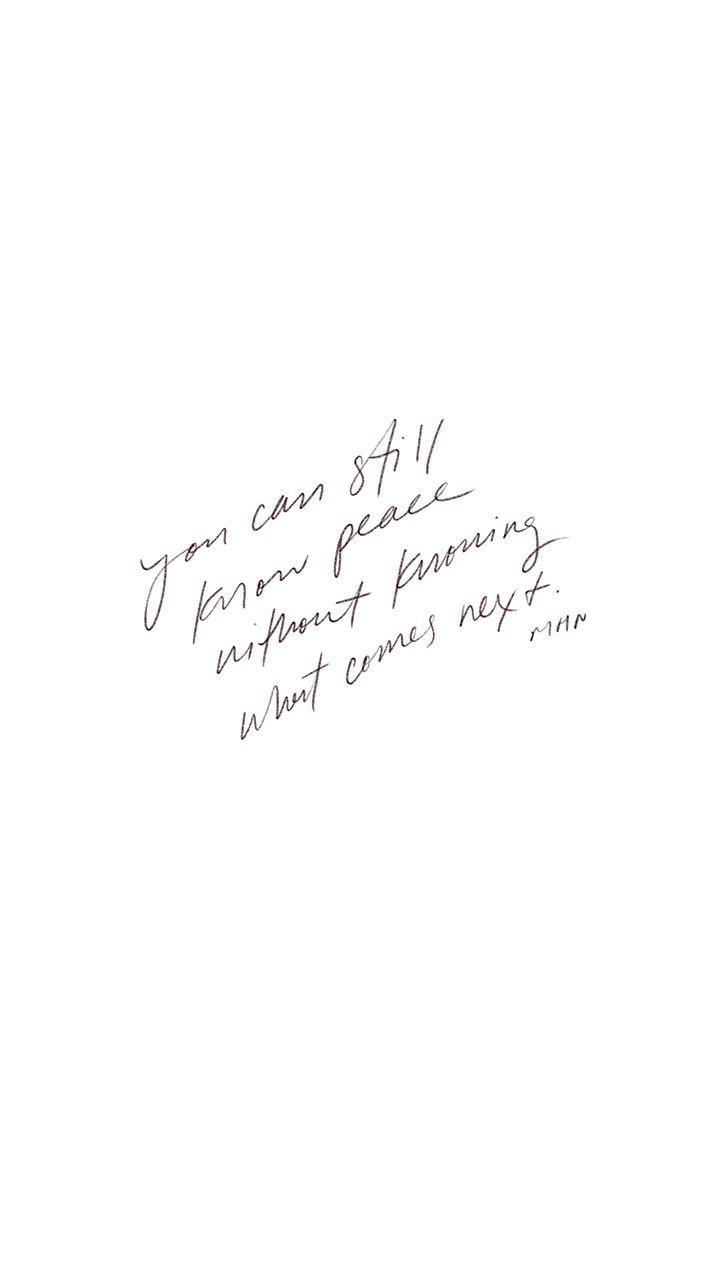 you can still
know peace
without knowing
what comes next.
MHN